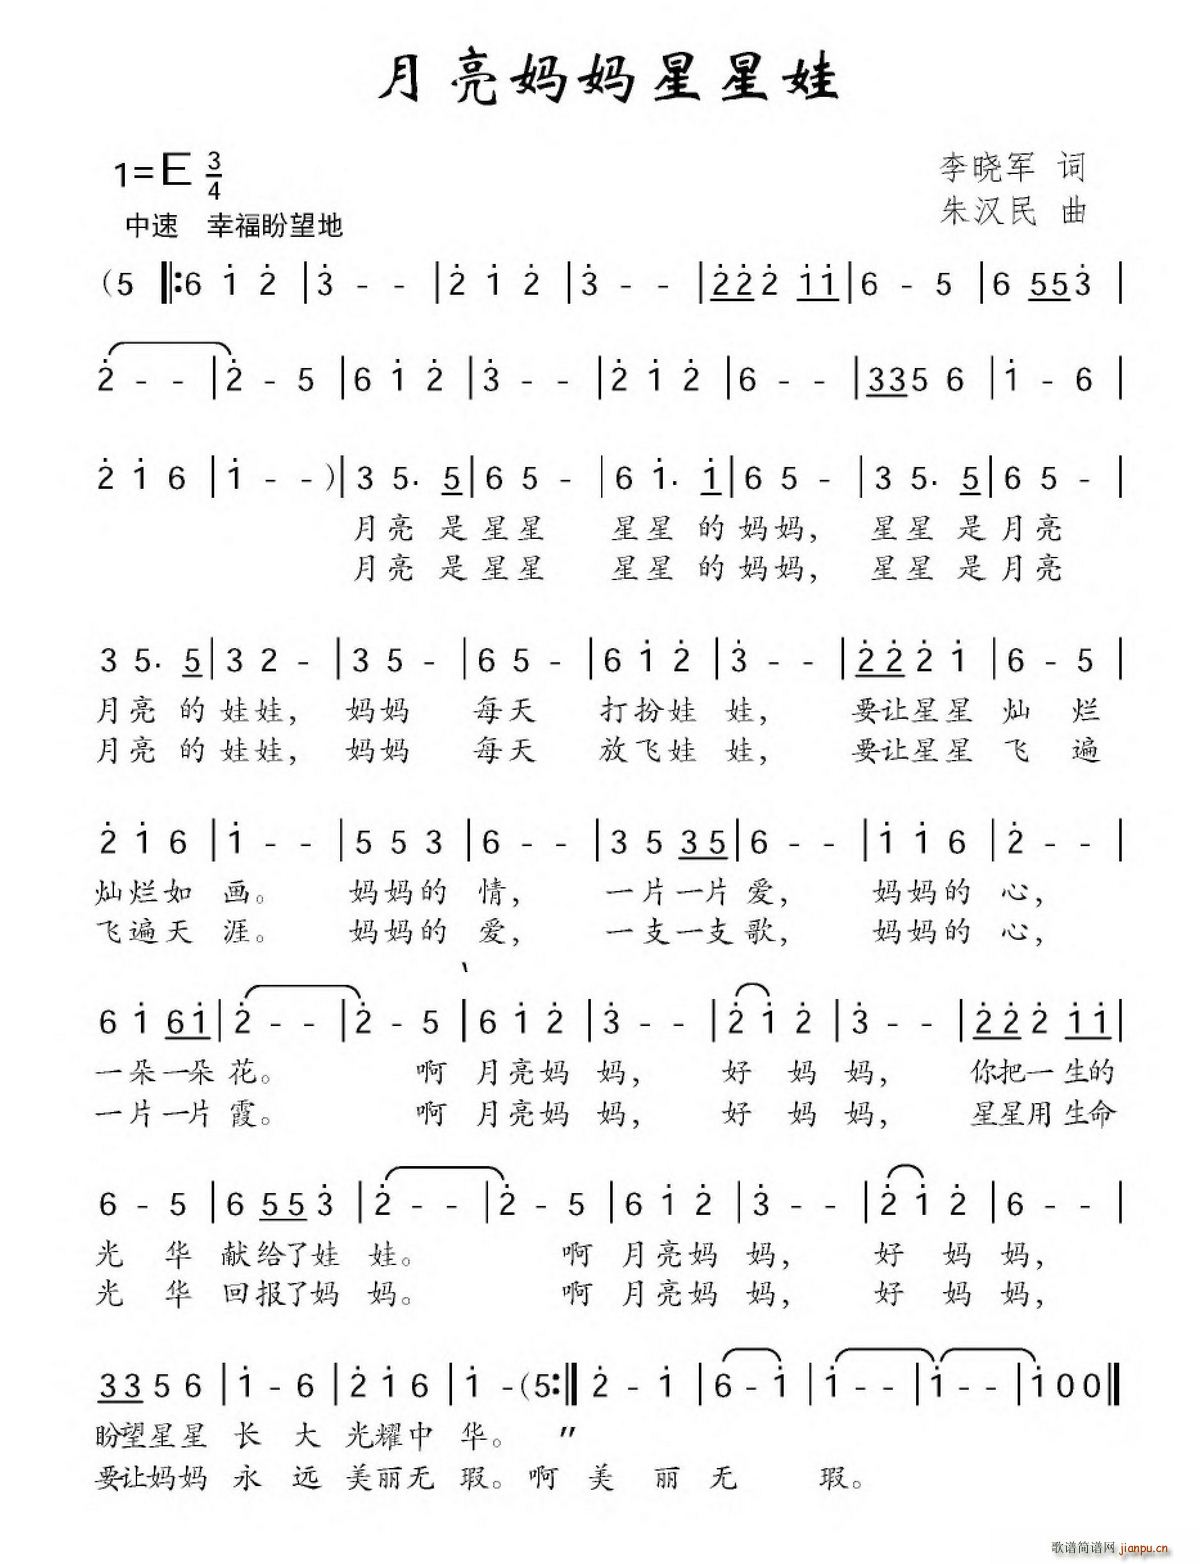 月亮妈妈星星娃
1=E 3/4
李晓军 词
中速 幸福盼望地
朱汉民 曲
(5 ‖:6 i̇ 2̇ |3̇ - - |2̇ i̇ 2̇ |3̇ - - |2̇2̇2̇ i̇i̇|6 - 5 |6 553̇ |
2̇ - - |2̇ - 5 |6 i̇ 2̇ |3̇ - - |2̇ i̇ 2̇ |6 - - |335 6 |i̇ - 6 |
2̇ i̇ 6 |i̇ - - )|3 5. 5|6 5 - |6 i̇. i̇|6 5 - |3 5. 5|6 5 - |
月亮 是星星 星星 的妈妈, 星星 是月亮
月亮 是星星 星星 的妈妈, 星星 是月亮
3 5. 5|3 2 - |3 5 - |6 5 - |6 i̇ 2̇ |3̇ - - |2̇2̇2̇ i̇ |6 - 5 |
月亮 的娃娃, 妈妈 每天 打扮娃 娃, 要让星星 灿 烂
月亮 的娃娃, 妈妈 每天 放飞娃 娃, 要让星星 飞 遍
2̇ i̇ 6 |i̇ - - |5 5 3 |6 - - |3 5 35|6 - - |i̇ i̇ 6 |2̇ - - |
灿烂如 画。 妈妈的 情, 一片一片 爱, 妈妈的 心,
飞遍天 涯。 妈妈的 爱, 一支一支 歌, 妈妈的 心,
6 i̇ 6i̇|2̇ - - |2̇ - 5 |6 i̇ 2̇ |3̇ - - |2̇ i̇ 2̇ |3̇ - - |2̇2̇2̇ i̇i̇|
一朵一朵 花。 啊 月亮妈 妈, 好 妈 妈, 你把一生的
一片一片 霞。 啊 月亮妈 妈, 好 妈 妈, 星星用生命
6 - 5 |6 553̇ |2̇ - - |2̇ - 5 |6 i̇ 2̇ |3̇ - - |2̇ i̇ 2̇ |6 - - |
光 华 献给了娃 娃。 啊 月亮妈 妈, 好 妈 妈,
光 华 回报了妈 妈。 啊 月亮妈 妈, 好 妈 妈,
335 6 |i̇ - 6 |2̇ i̇ 6 |i̇ - (5:‖ 2̇ - i̇ |6 - i̇ |i̇ - - |i̇ - - |i̇ 0 0 ‖
盼望星星 长 大 光耀中 华。 〃
要让妈妈 永 远 美丽无 瑕。啊 美 丽 无 瑕。
歌谱简谱网
jianpu.cn